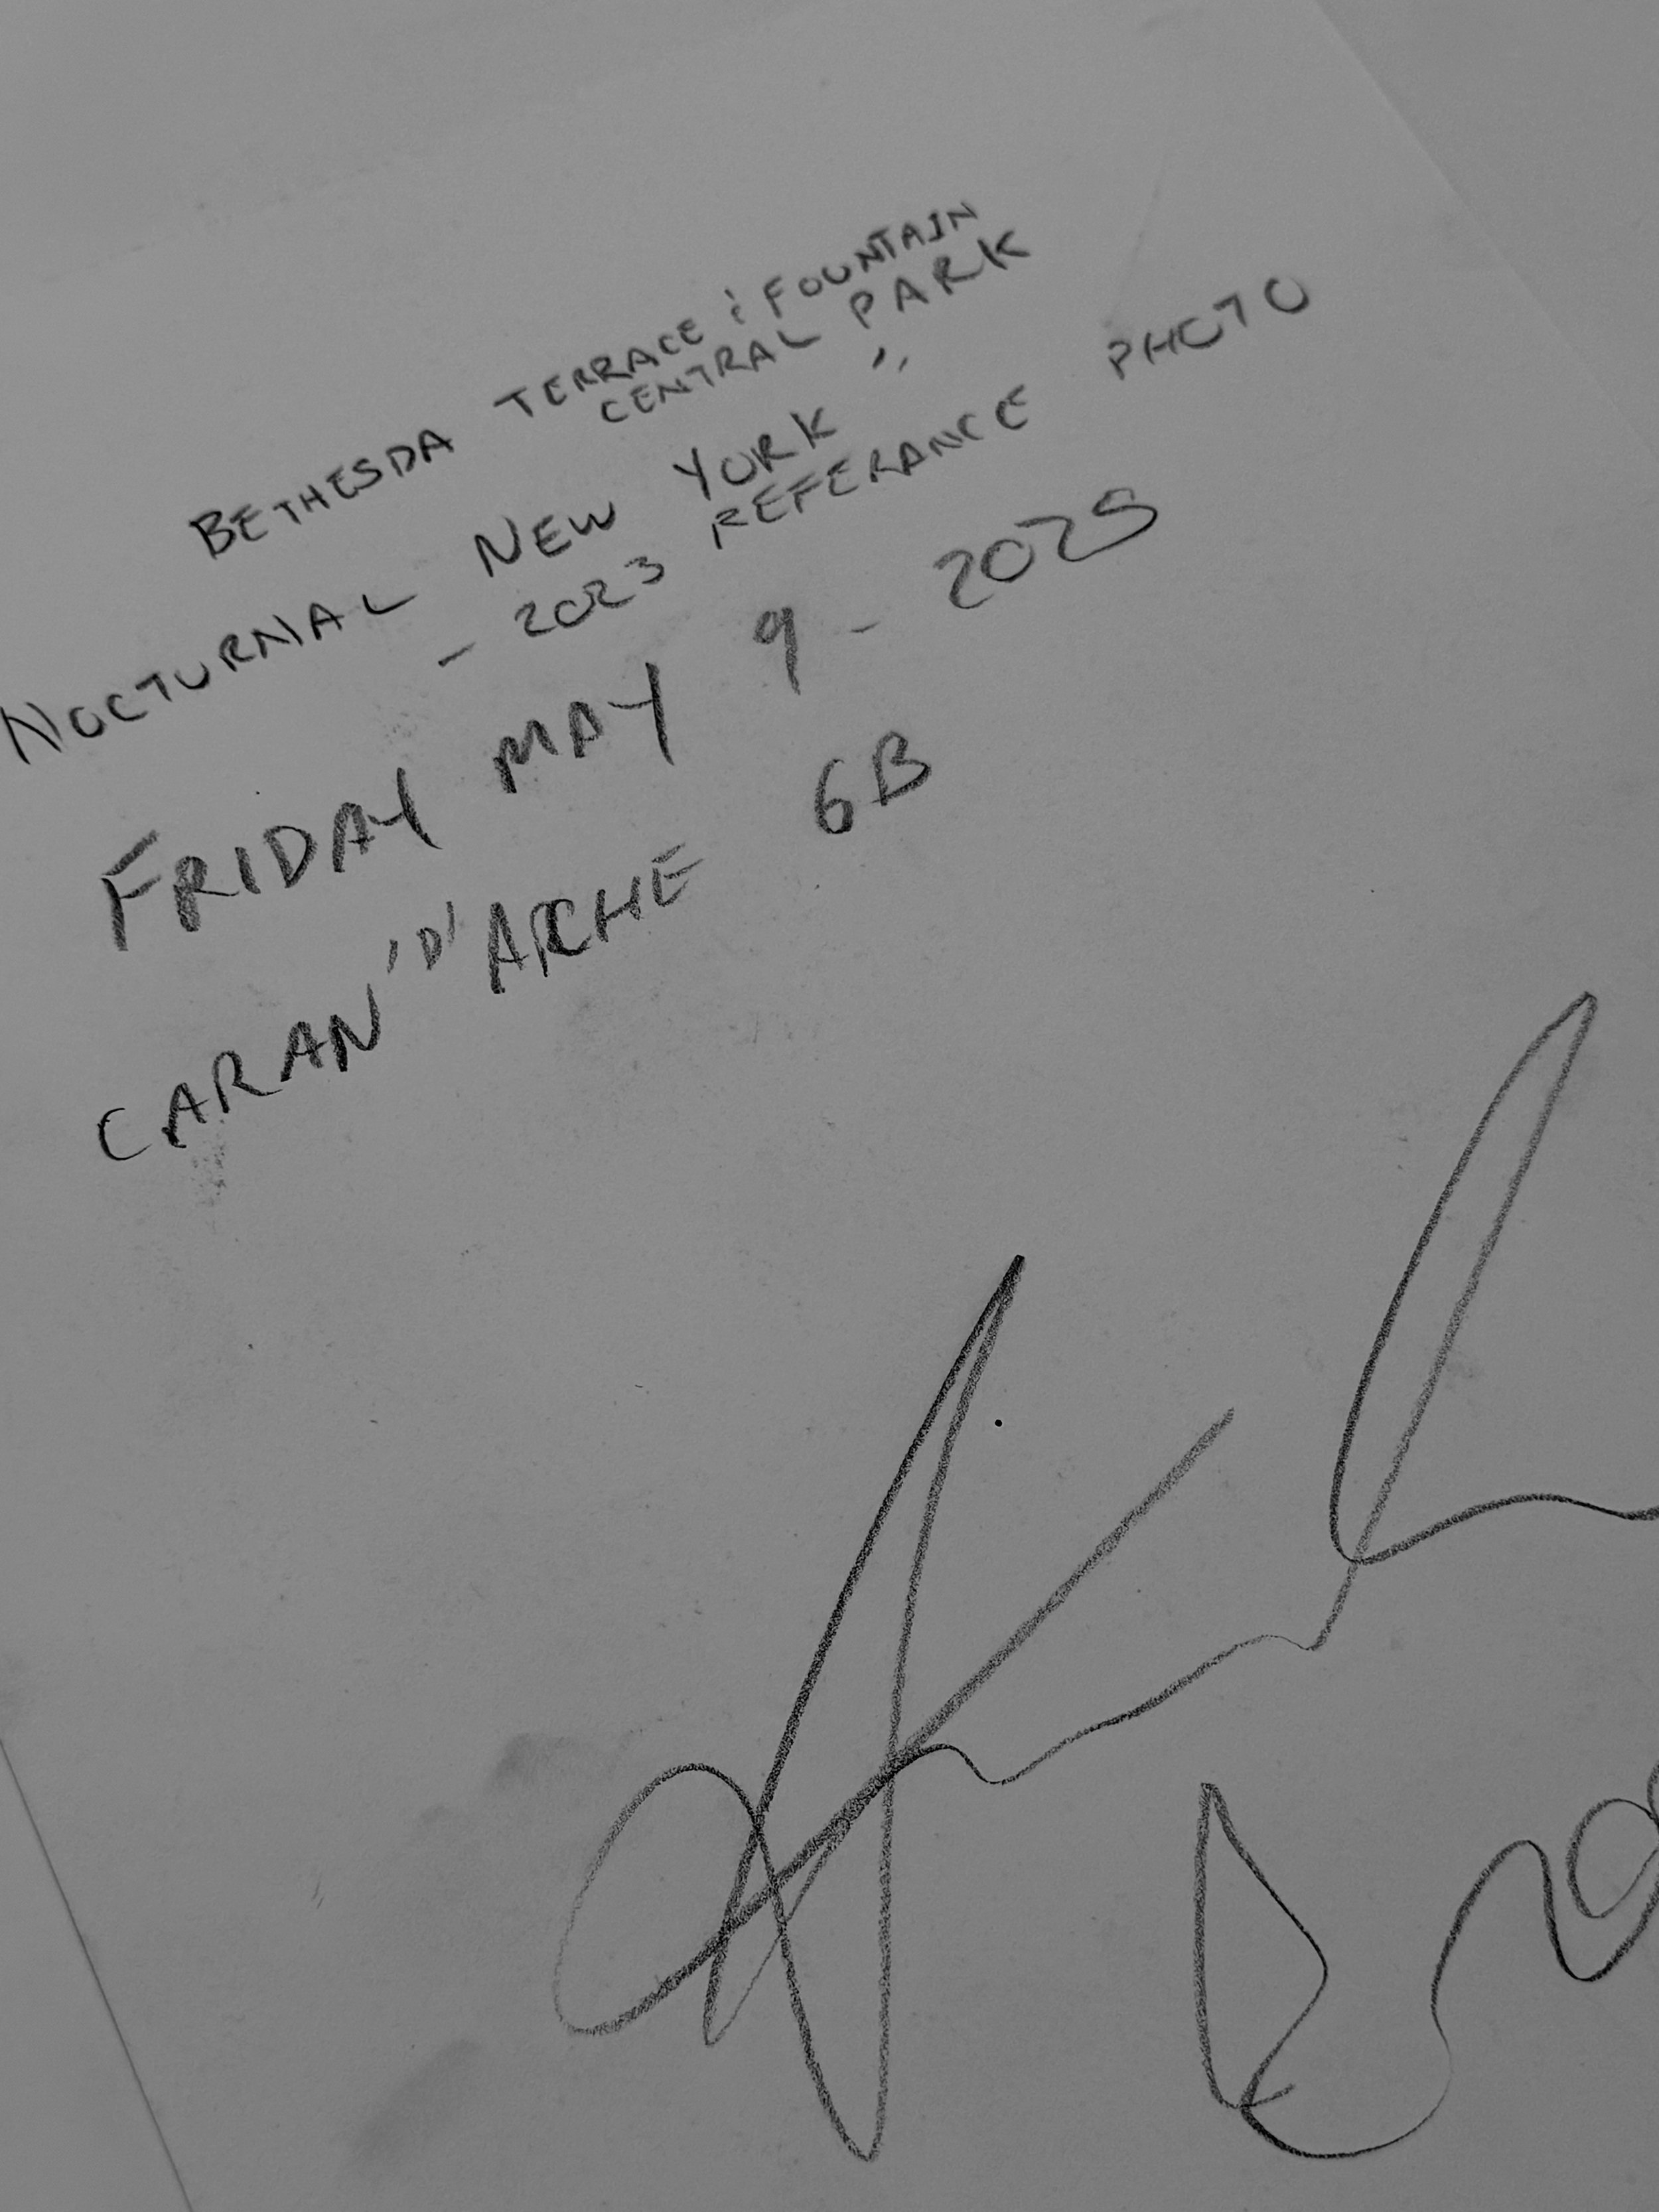 BETHESDA TERRACE & FOUNTAIN
CENTRAL PARK
NOCTURNAL NEW YORK "
- 2023 REFERANCE PHOTO
FRIDAY MAY 9 - 2025
CARAN 'D' ARCHE 6B